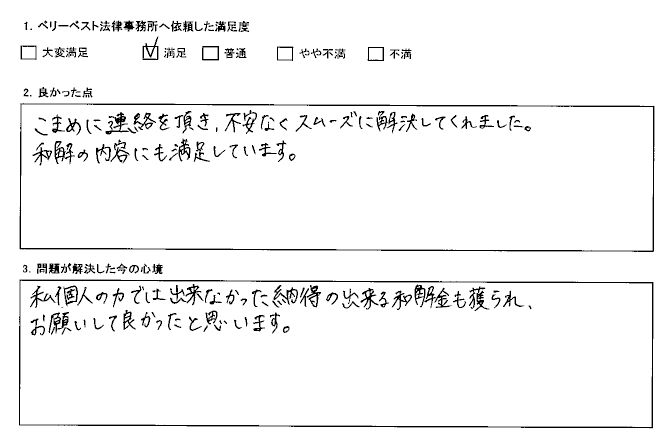 1. ベリーベスト法律事務所へ依頼した満足度
□ 大変満足 ☑ 満足 □ 普通 □ やや不満 □ 不満
2. 良かった点
こまめに連絡を頂き、不安なくスムーズに解決してくれました。
和解の内容にも満足しています。
3. 問題が解決した今の心境
私個人の力では出来なかった納得の出来る和解金も獲られ、
お願いして良かったと思います。